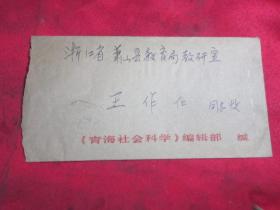 浙江省萧山县教育局教研室
王作仁 同志收
《青海社会科学》编辑部 缄